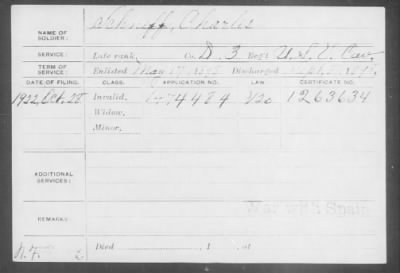 NAME OF SOLDIER: Charles
SERVICE: Late rank, Co. D. 3 Reg't U.S.V. Cav.
TERM OF SERVICE: Enlisted May 17, Discharged
DATE OF FILING. CLASS. APPLICATION NO. LAW. CERTIFICATE NO.
1922, Oct. 28 Invalid, 1474484 1263634
Widow,
Minor,
ADDITIONAL SERVICES:
War with Spain
REMARKS:
Died , 1 , at